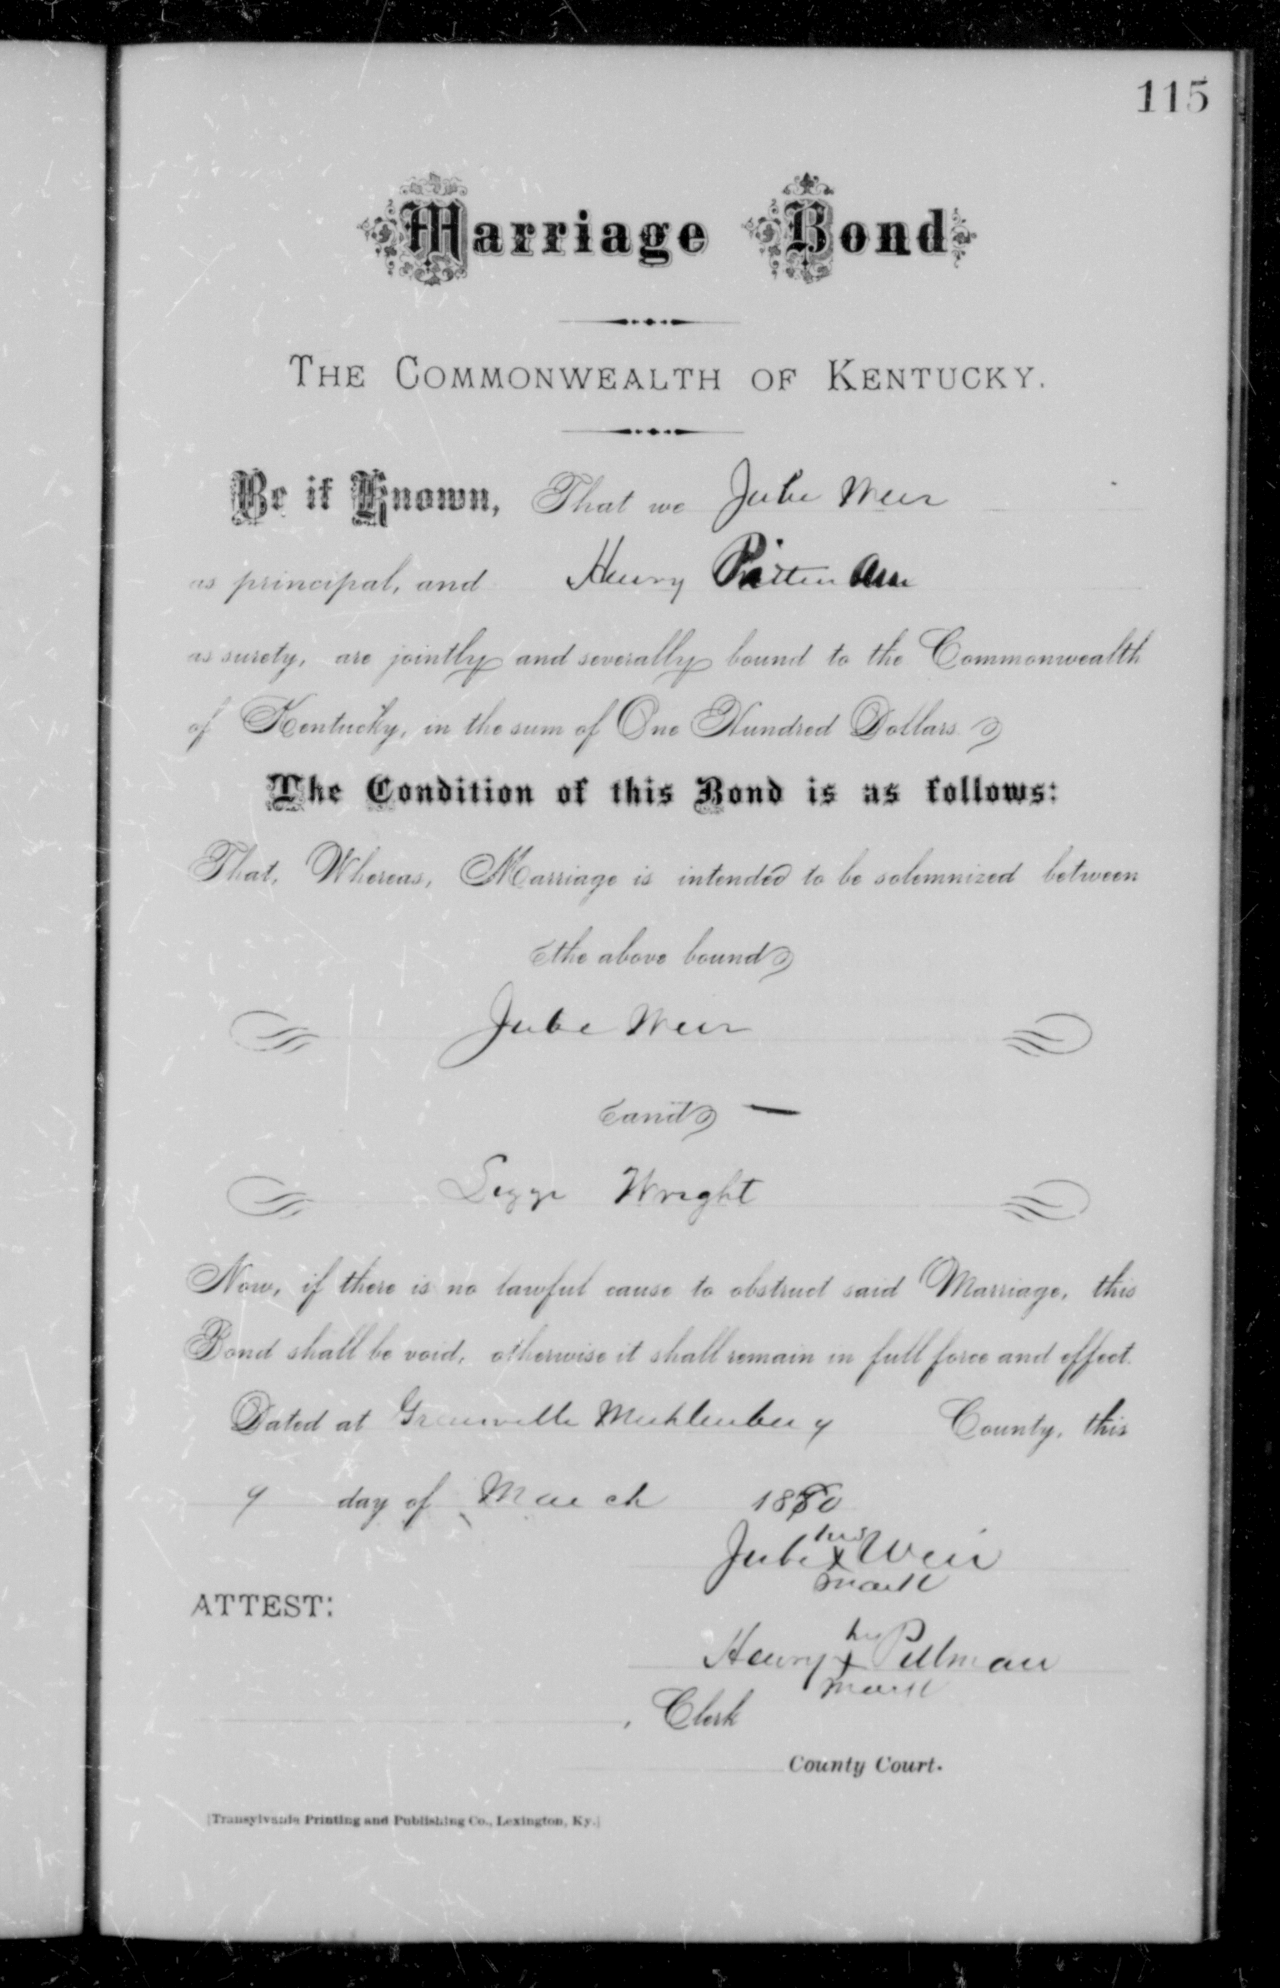 115
Marriage Bond
THE COMMONWEALTH OF KENTUCKY.
Be it Known, That we Jube Weir
as principal, and Henry
as surety, are jointly and severally bound to the Commonwealth
of Kentucky, in the sum of One Hundred Dollars.
The Condition of this Bond is as follows:
That, Whereas, Marriage is intended to be solemnized between
the above bound
Jube Weir
and —
Wright
Now, if there is no lawful cause to obstruct said Marriage, this
Bond shall be void, otherwise it shall remain in full force and effect.
Dated at Greenville Muhlenberg County, this
9 day of March 1880
his
Jube X Weir
mark
ATTEST:
his
Henry X Pittman
mark
, Clerk
County Court.
[Transylvania Printing and Publishing Co., Lexington, Ky.]